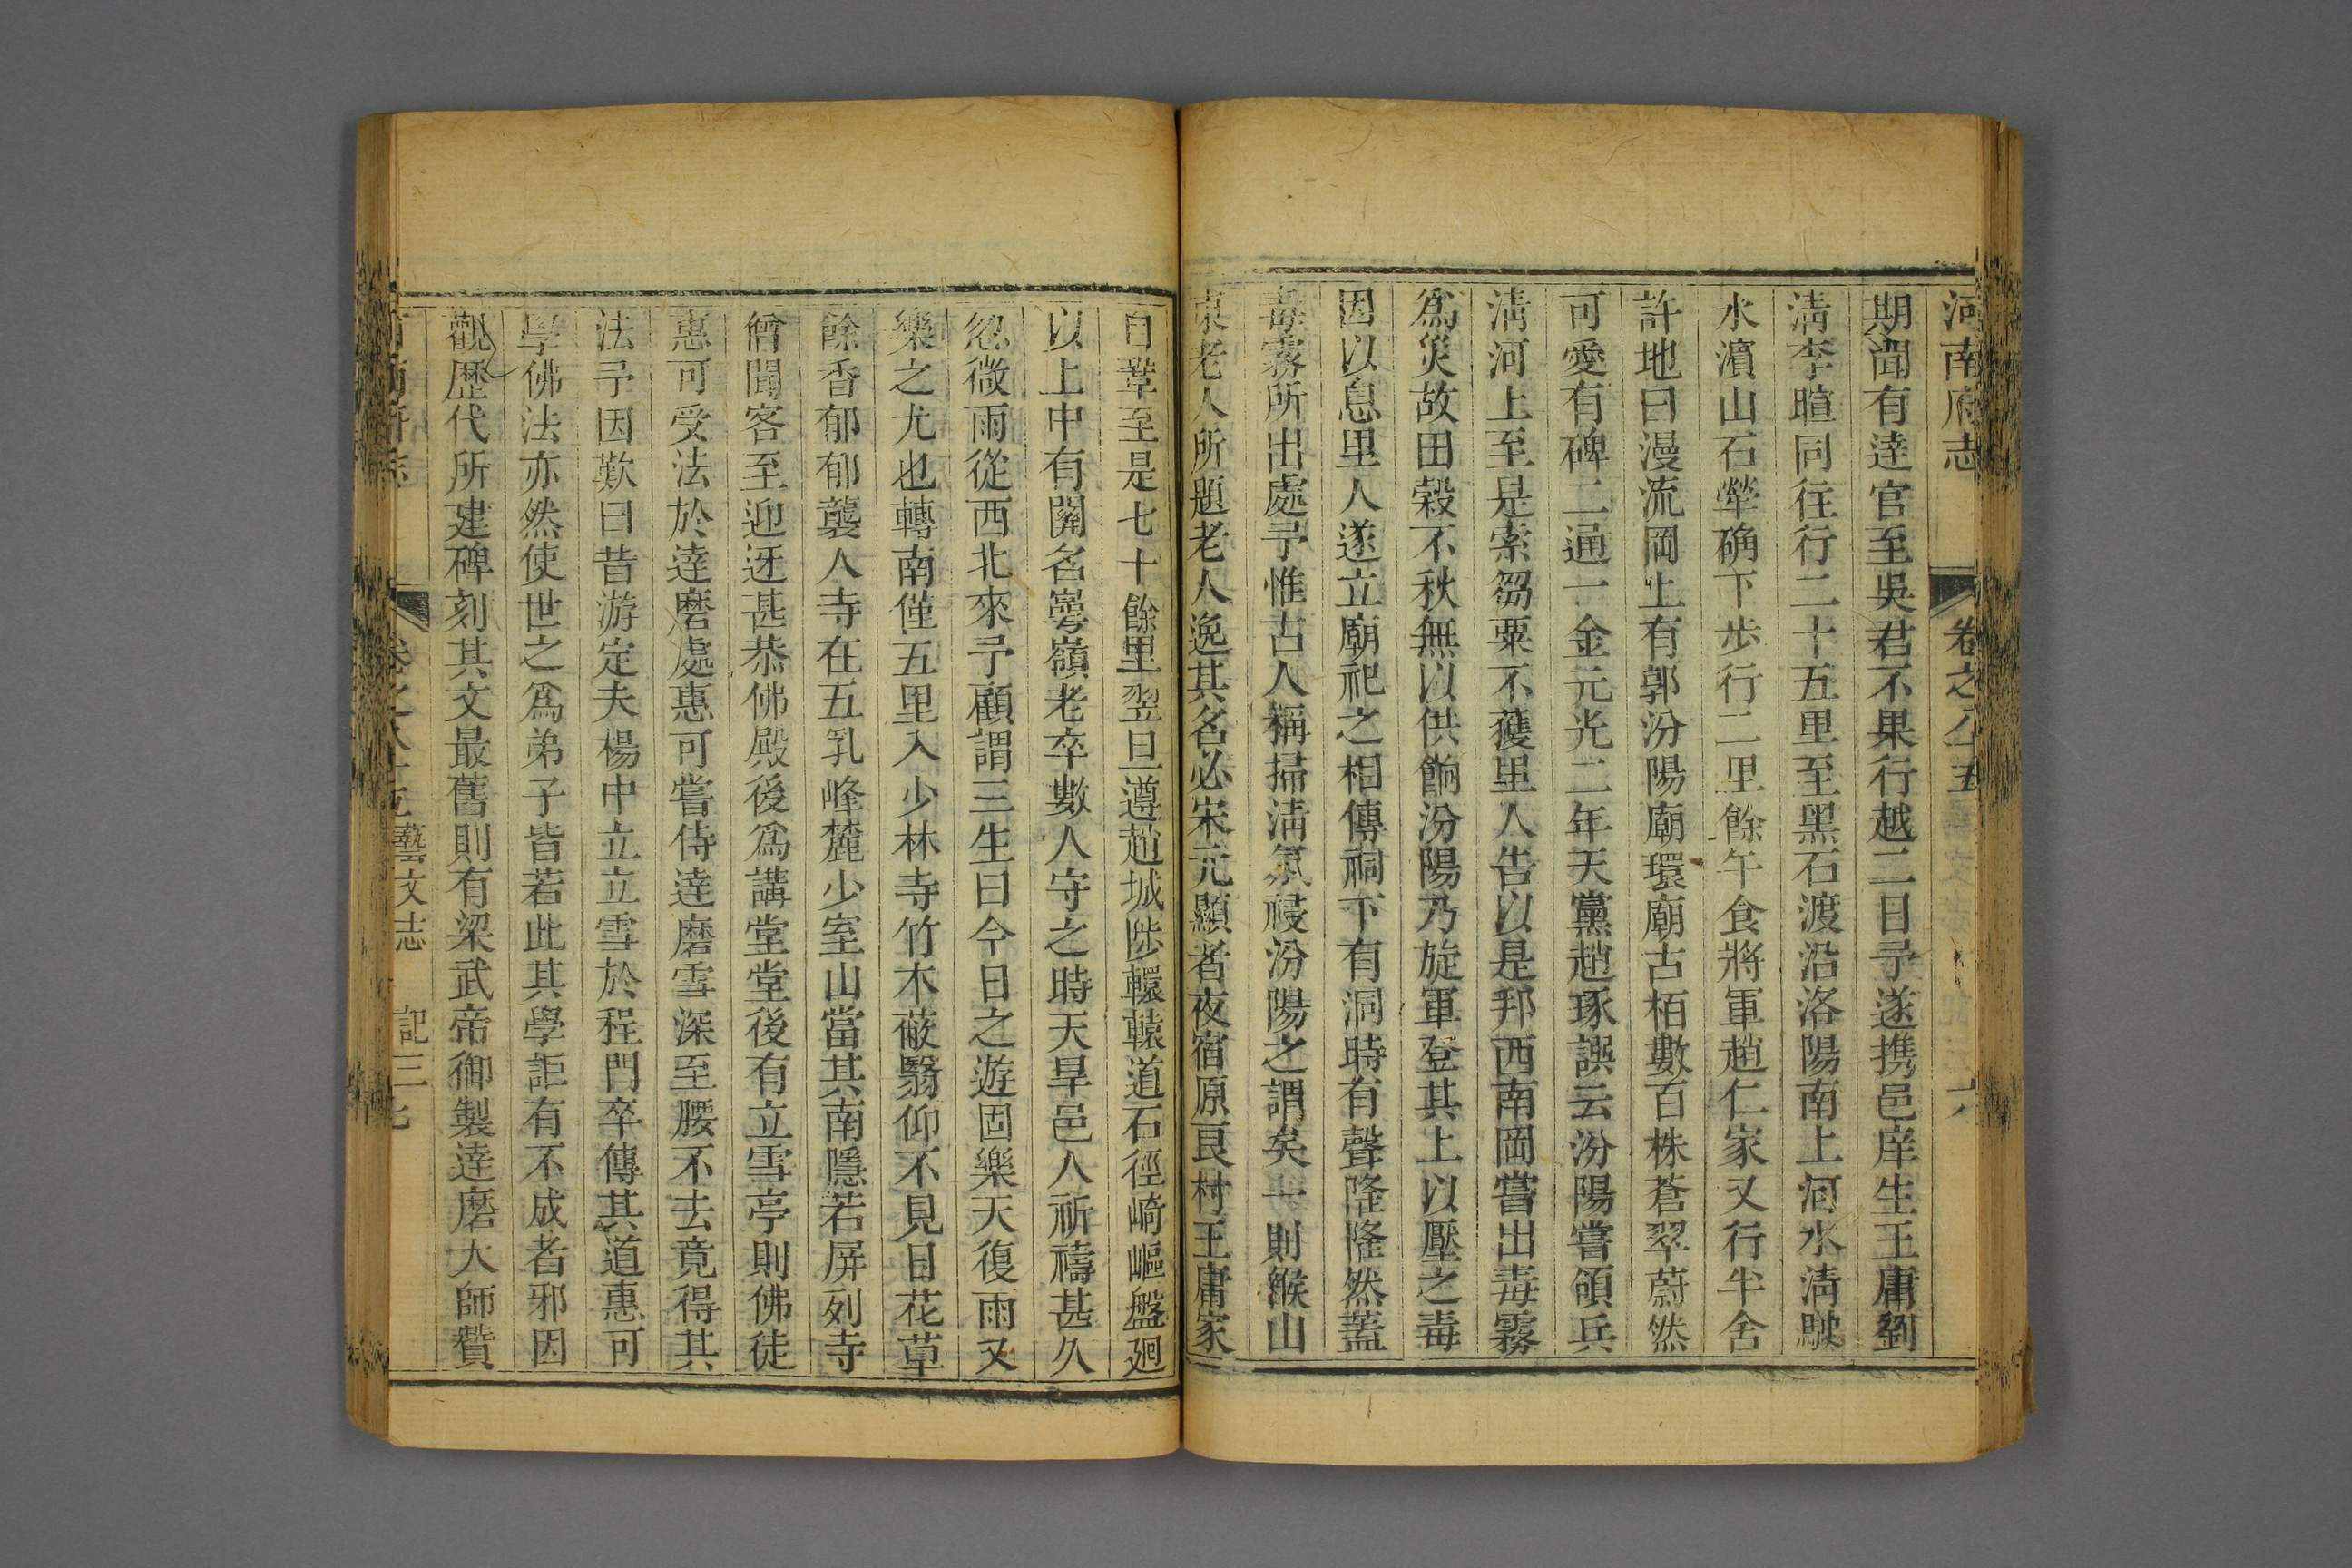 河南府志 卷之八十五 六
期聞有達官至吳君不果行越二日予遂携邑庠生王庸劉
清李暄同往行二十五里至黑石渡沿洛陽南上河水清駛
水濵山石犖确下步行二里餘午食將軍趙仁家又行半舍
許地曰漫流岡上有郭汾陽廟環廟古栢數百株蒼翠蔚然
可愛有碑二通一金元光二年天黨趙琢譔云汾陽嘗領兵
清河上至是索芻粟不獲里人告以是邦西南岡嘗出毒霧
爲災故田穀不秋無以供餉汾陽乃旋軍登其上以壓之毒
因以息里人遂立廟祀之相傳祠下有洞時有聲隆隆然蓋
毒霧所出處予惟古人稱掃清氛祲汾陽之謂矣一則緱山
東老人所題老人逸其名必宋元顯者夜宿原良村王庸家
自鞏至是七十餘里翌旦遵趙城陟轘轅道石徑崎嶇盤廻
以上中有關名嶺老卒數人守之時天旱邑人祈禱甚久
忽微雨從西北來予顧謂三生曰今日之遊固樂天復雨又
樂之尤也轉南僅五里入少林寺竹木蔽翳仰不見日花草
餘香郁郁襲人寺在五乳峰麓少室山當其南隱若屏列寺
僧聞客至迎迓甚恭佛殿後爲講堂堂後有立雪亭則佛徒
惠可受法於達磨處惠可嘗侍達磨雪深至腰不去竟得其
法予因歎曰昔游定夫楊中立立雪於程門卒傳其道惠可
學佛法亦然使世之爲弟子皆若此其學詎有不成者邪因
觀歷代所建碑刻其文最舊則有梁武帝御製達磨大師贊
河南府志 卷之八十五藝文志 記三 七